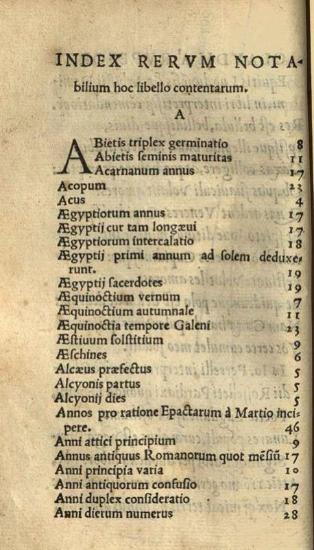 INDEX RERVM NOTA-
bilium hoc libello contentarum.
A
ABietis triplex germinatio 8
Abietis seminis maturitas 11
Acarnanum annus 17
Acopum 23
Acus 4
Ægyptiorum annus 17
Ægyptij cur tam longæui 17
Ægyptiorum intercalatio 18
Ægyptij primi annum ad solem deduxe-
runt. 19
Ægyptij sacerdotes 19
Æquinoctium vernum 7
Æquinoctium autumnale 11
Æquinoctia tempore Galeni 23
Æstiuum solstitium 9
Æschines 6
Alcæus præfectus 5
Alcyonis partus 5
Alcyonij dies 5
Annos pro ratione Epactarum à Martio inci
pere. 46
Anni attici principium 9
Annus antiquus Romanorum quot mẽsiũ 17
Anni principia varia 10
Anni antiquorum confusio 17
Anni duplex consideratio 18
Anni dierum numerus 28